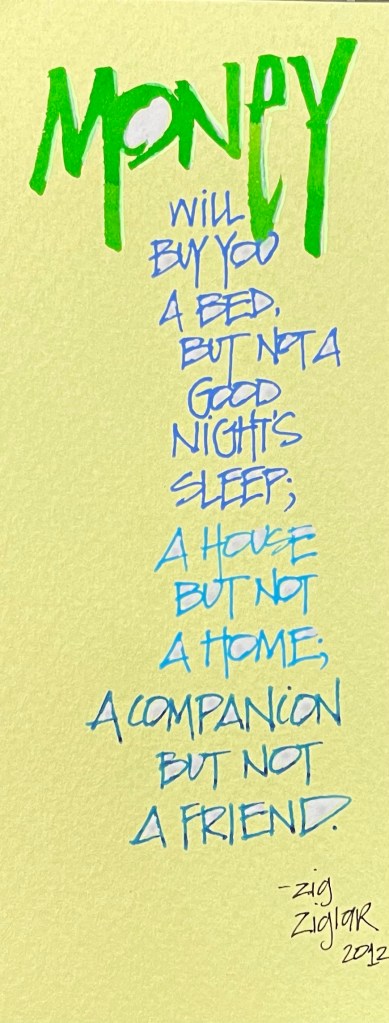 MONEY
WiLL
BUY YOU
A BED,
BUT NOT A
GOOD
NIGHT'S
SLEEP;
A HOUSE
BUT NOT
A HOME;
A COMPANiON
BUT NOT
A FRIEND.
-zig
ZiglaR
2012